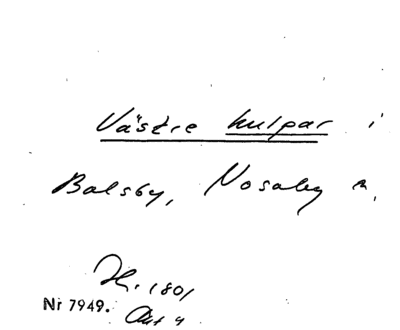 Västre hulpar i
Balsby, Nosaby s,
H. 1801
Nr 7949.
Akt 4